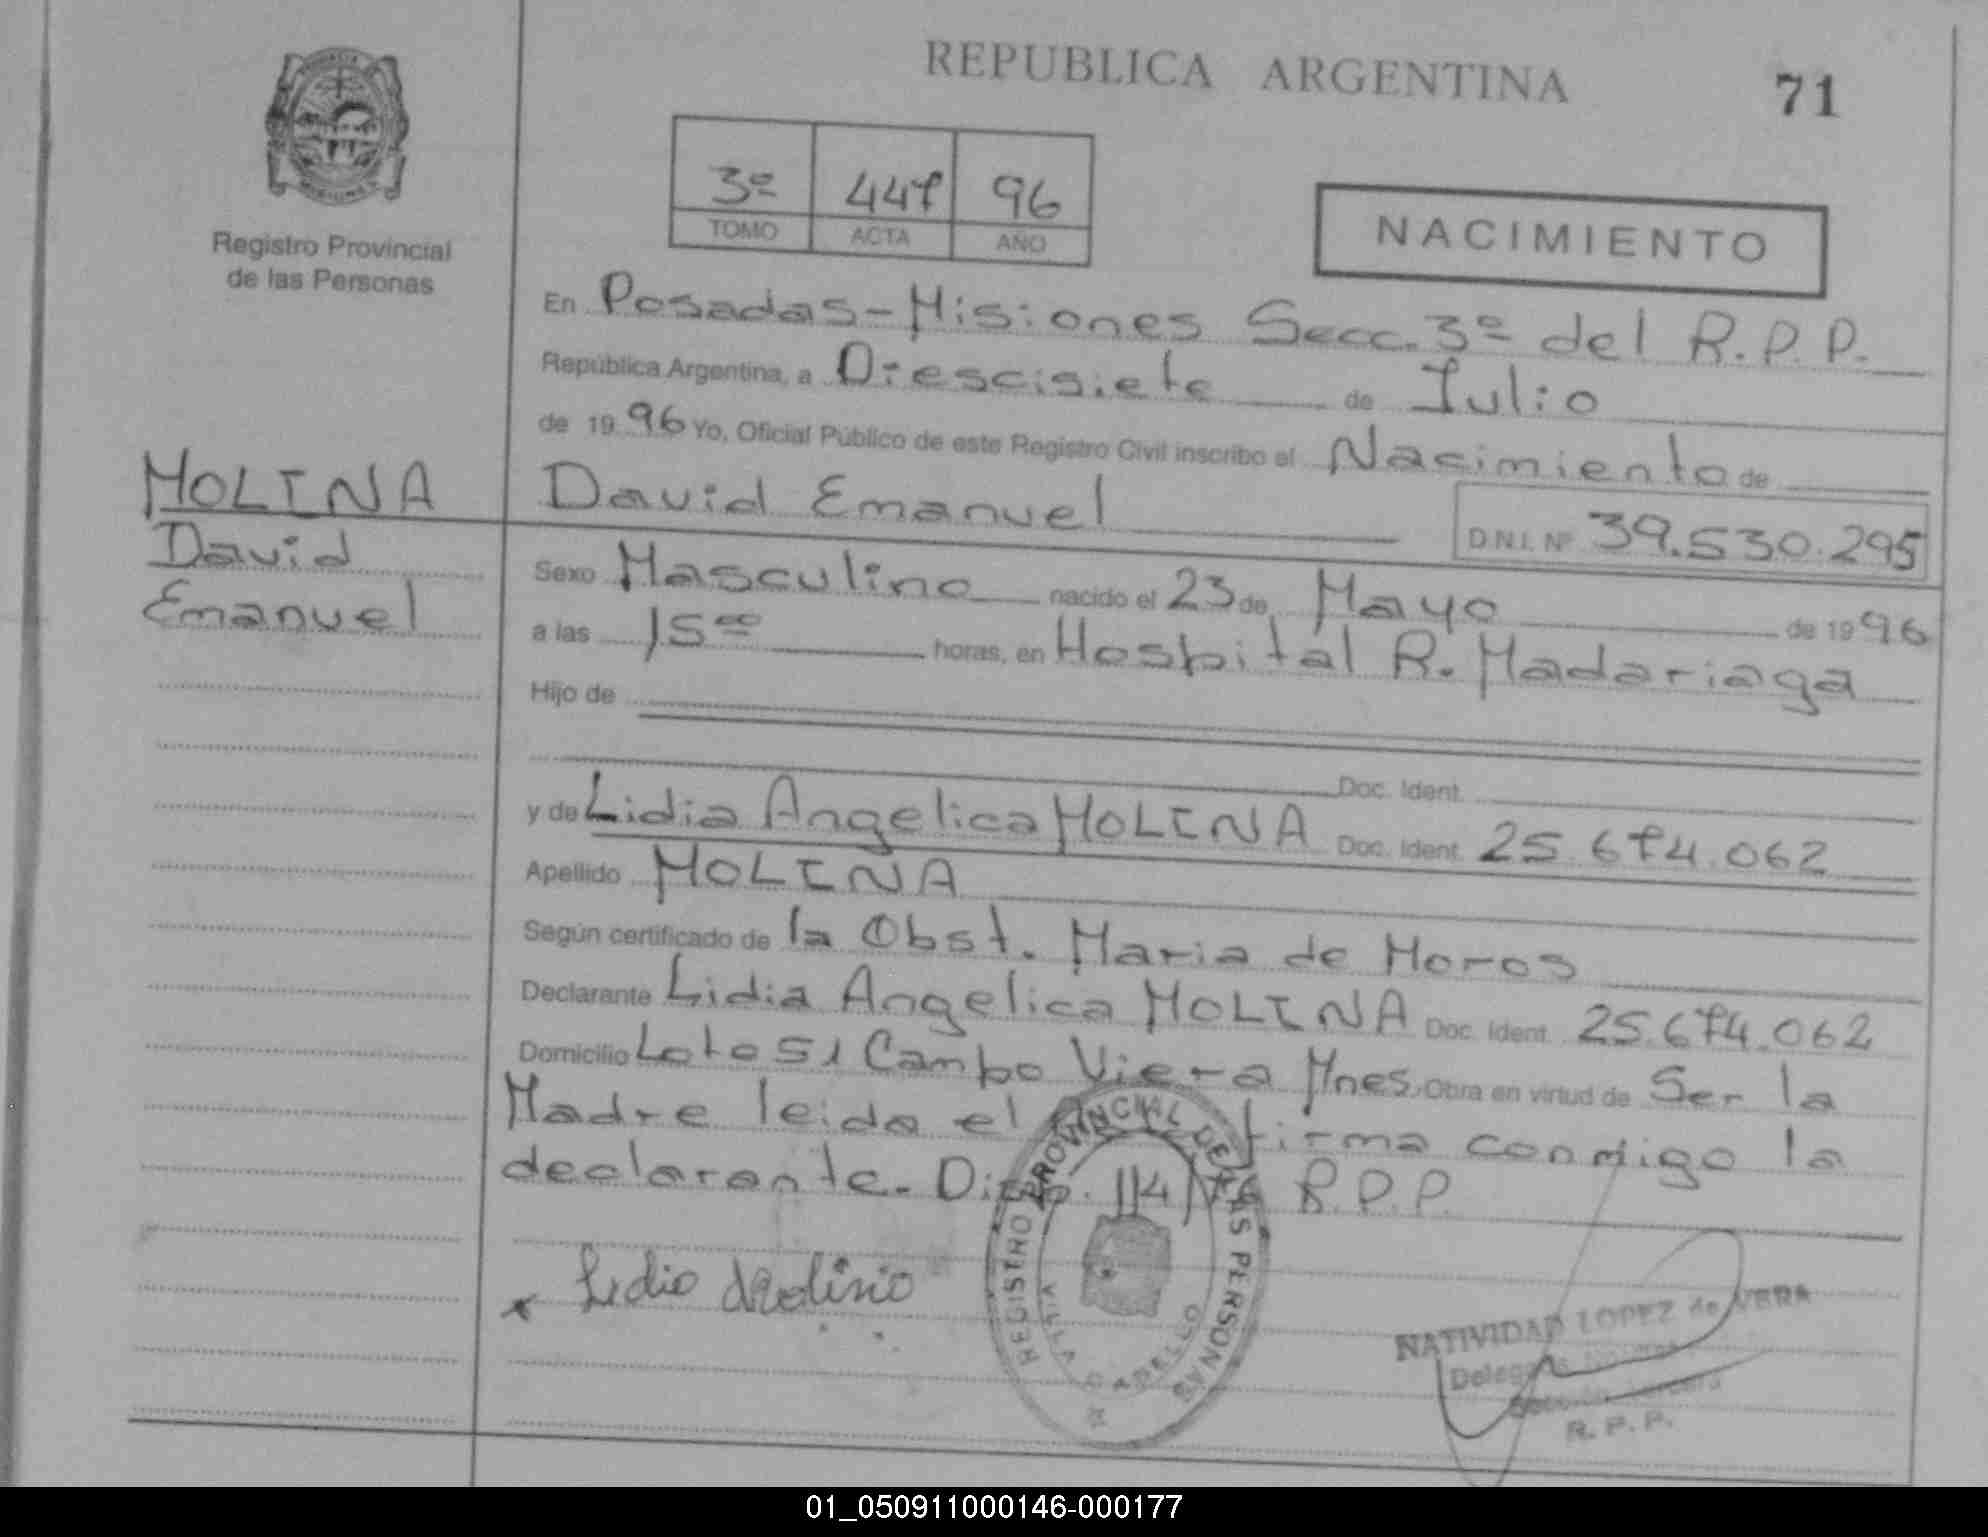 REPUBLICA ARGENTINA
71
3º 447 96
TOMO ACTA AÑO
NACIMIENTO
Registro Provincial
de las Personas
MOLINA
David
Emanuel
En Posadas - Misiones Secc. 3º del R.P.P.
República Argentina, a Diescisiete de Julio
de 19 96 Yo, Oficial Público de este Registro Civil inscribo el Nacimiento de
David Emanuel
D.N.I. Nº 39.530.295
Sexo Masculino nacido el 23 de Mayo de 19 96
a las 15 ºº horas, en Hospital R. Madariaga
Hijo de
Doc. Ident.
y de Lidia Angelica MOLINA Doc. Ident. 25.674.062
Apellido MOLINA
Según certificado de la Obst. Maria de Moros
Declarante Lidia Angelica MOLINA Doc. Ident. 25.674.062
Domicilio Lote 51 Campo Viera Mnes. Obra en virtud de Ser la
Madre leida el firma conmigo la
declarante. Disp. R.P.P.
REGISTRO PROVINCIAL DE LAS PERSONAS
VILLA
Lidia Molina
NATIVIDAD LOPEZ de VERA
R. P. P.
01_050911000146-000177